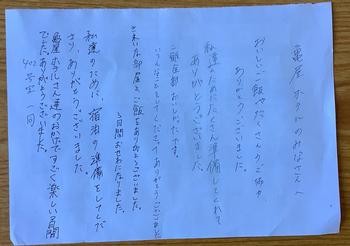 亀屋ホテルのみなさんへ
おいしいご飯やたくさんのご協力
ありがとうございました。
私達のためにたくさん準備してくれて
ありがとうございます
ご飯全部おいしかったです。
ありがとうございました
きれいなお部屋と、ご飯をありがとうございました。
3日間おせわになりました。
私達のために、宿泊の準備をしてくださり、ありがとうございました。
亀屋ホテルさん達のおかげですごく楽しい3日間
でした。ありがとうございました。
402号室一同